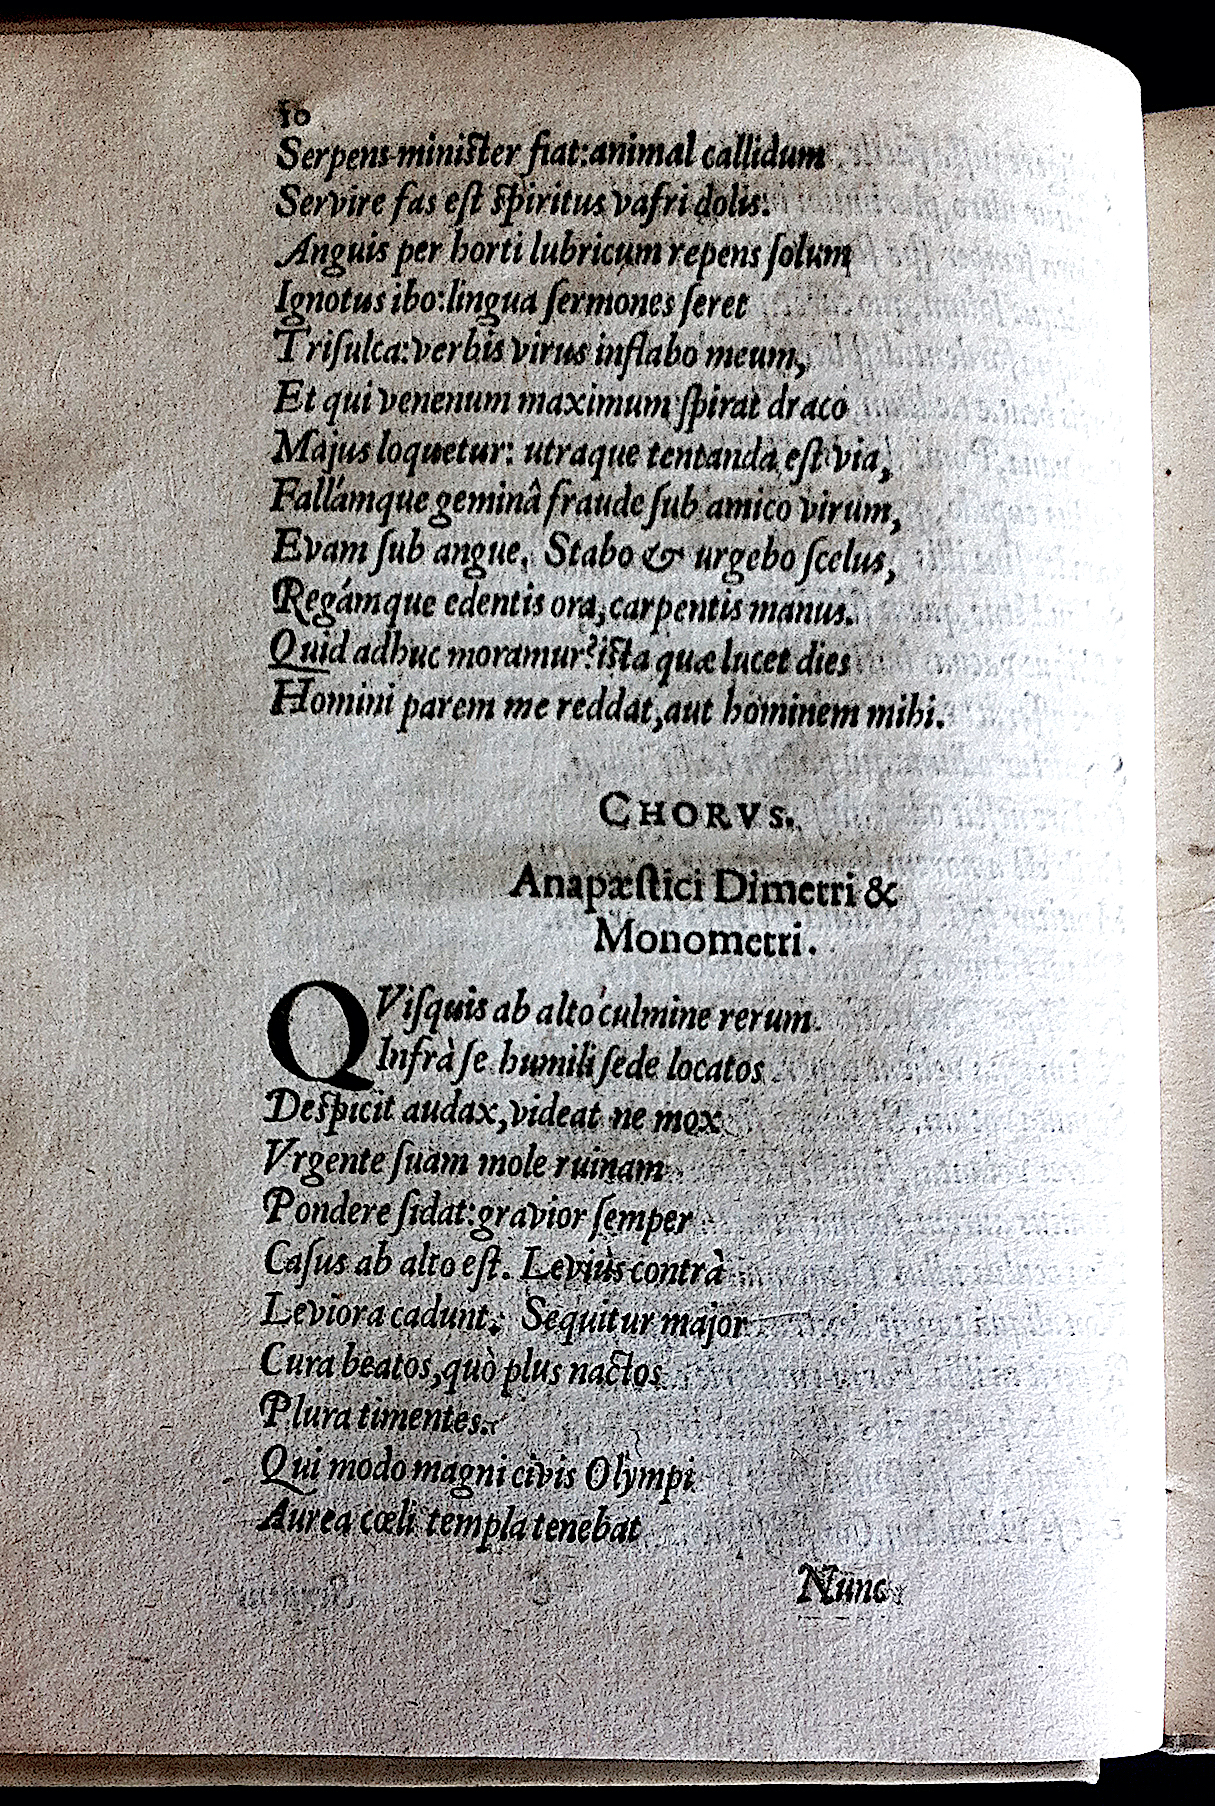 10
Serpens minister fiat: animal callidum
Servire fas est spiritus vafri dolis.
Anguis per horti lubricum repens ſolum
Ignotus ibo: lingua ſermones ſeret
Triſulca: verbis virus inflabo meum,
Et qui venenum maximum ſpirat draco
Majus loquetur: utraque tentanda eſt via,
Fallámque geminâ fraude ſub amico virum,
Evam ſub angue. Stabo & urgebo ſcelus,
Regámque edentis ora, carpentis manus.
Quid adhuc moramur? iſta quæ lucet dies
Homini parem me reddat, aut hominem mihi.
CHORVS.
Anapæſtici Dimetri &
Monometri.
QViſquis ab alto culmine rerum
Infrà ſe humili ſede locatos
Deſpicit audax, videat ne mox
Vrgente ſuam mole ruinam
Pondere ſidat: gravior ſemper
Caſus ab alto eſt. Leviùs contrà
Leviora cadunt. Sequitur major
Cura beatos, quò plus nactos
Plura timentes.
Qui modo magni civis Olympi
Aurea cœli templa tenebat
Nunc